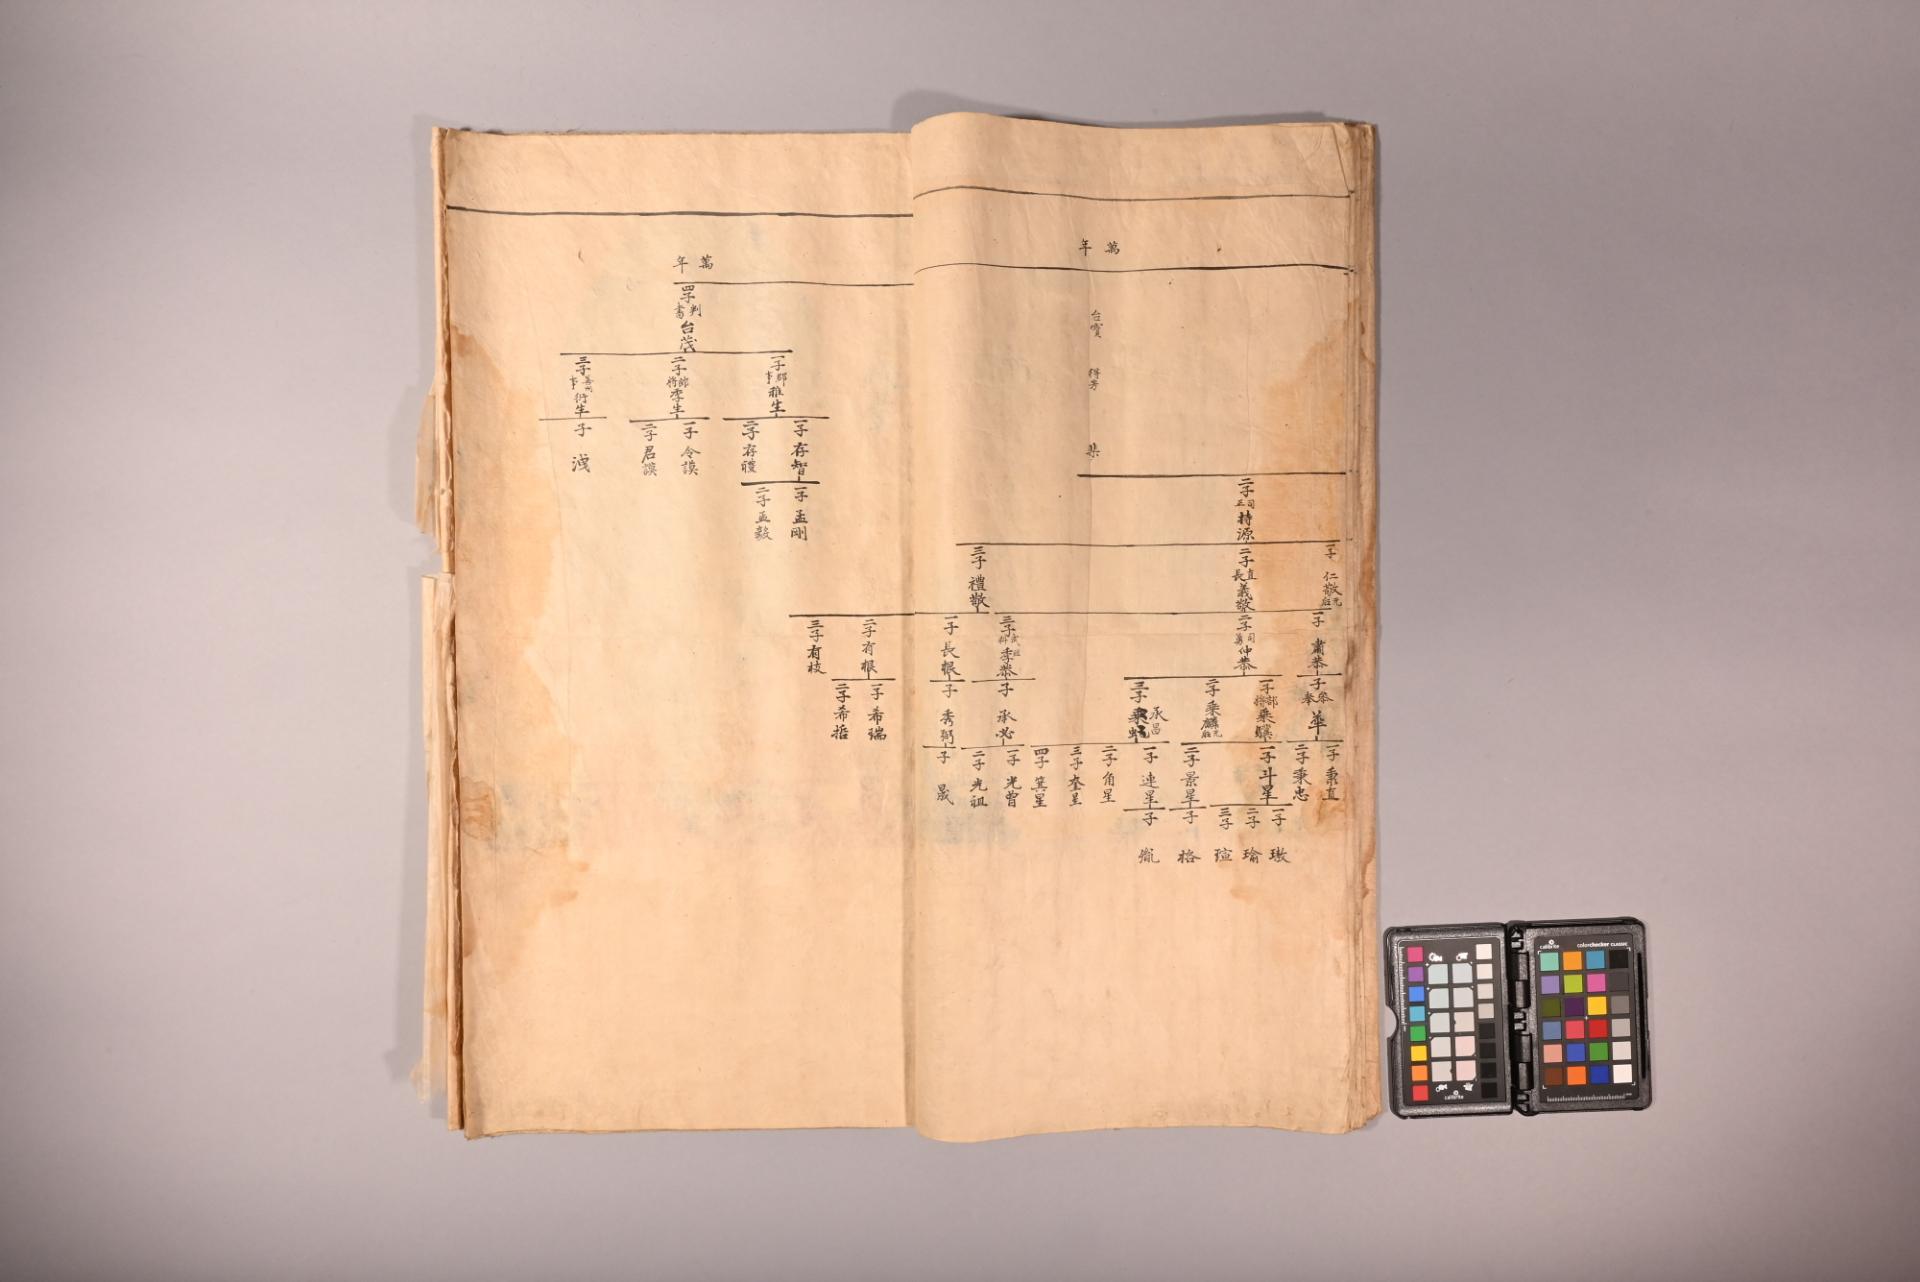 萬年
台寶
得芳
榘
二子 司正 持源
一子 仁敬 无后
二子 直長 義敬
三子 禮敬
一子 肅恭
二子 司勇 仲恭
三子 武班 季恭
一子 長根
二子 有根
三子 有枝
子 參奉 華
一子 部將 乘
二子 乘麟 无后
三子 承昌
子 承
子 秀弼
一子 希瑞
二子 希哲
一子 秉直
二子 秉忠
一子 斗星
二子 景星
一子 連星
二子 角星
三子 奎星
四子 箕星
一子 光曾
二子 光祖
子 晟
一子 璈
二子 瑜
三子 瑄
子 格
子 胤
萬年
四子 判書 台茂
一子 郡事 稚生
二子 郎將 季生
三子 衍生
一子 存智
二子 存禮
一子 令謨
二子 君謨
子 渽
一子 孟剛
二子 孟毅
calibrite
calibrite
colorchecker CLASSIC